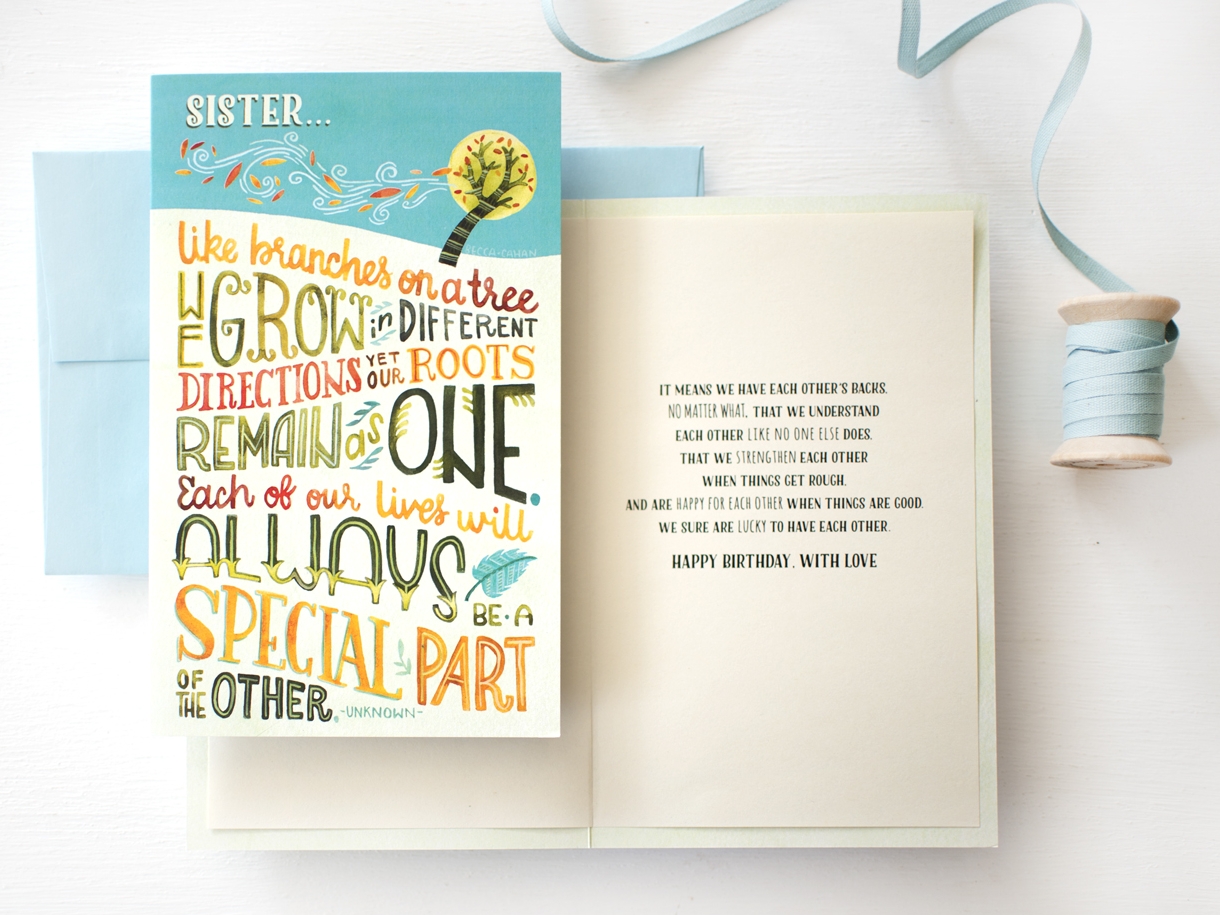 SISTER...
like branches on a tree
WE GROW in DIFFERENT
DIRECTIONS YET OUR ROOTS
REMAIN as ONE.
Each of our lives will
ALWAYS
BE·A
SPECIAL PART
OF THE OTHER.
-UNKNOWN-
IT MEANS WE HAVE EACH OTHER'S BACKS.
NO MATTER WHAT. THAT WE UNDERSTAND
EACH OTHER LIKE NO ONE ELSE DOES.
THAT WE STRENGTHEN EACH OTHER
WHEN THINGS GET ROUGH.
AND ARE HAPPY FOR EACH OTHER WHEN THINGS ARE GOOD.
WE SURE ARE LUCKY TO HAVE EACH OTHER.
HAPPY BIRTHDAY. WITH LOVE